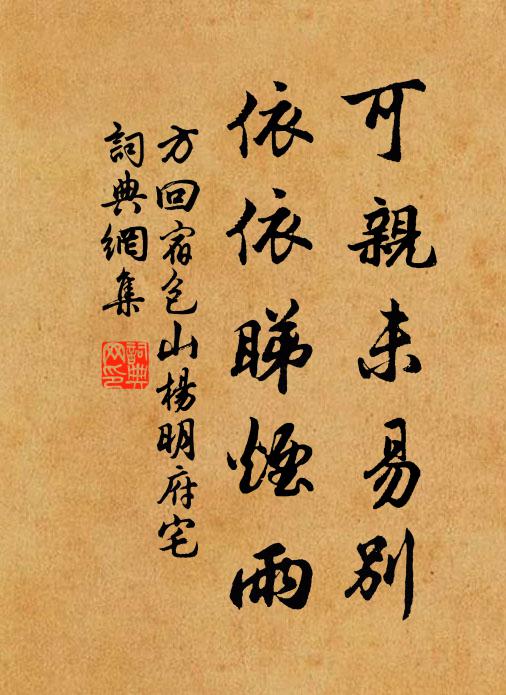 可親未易別
依依睇煙雨
方回宿包山楊明府宅
詞典網集
詞典网印